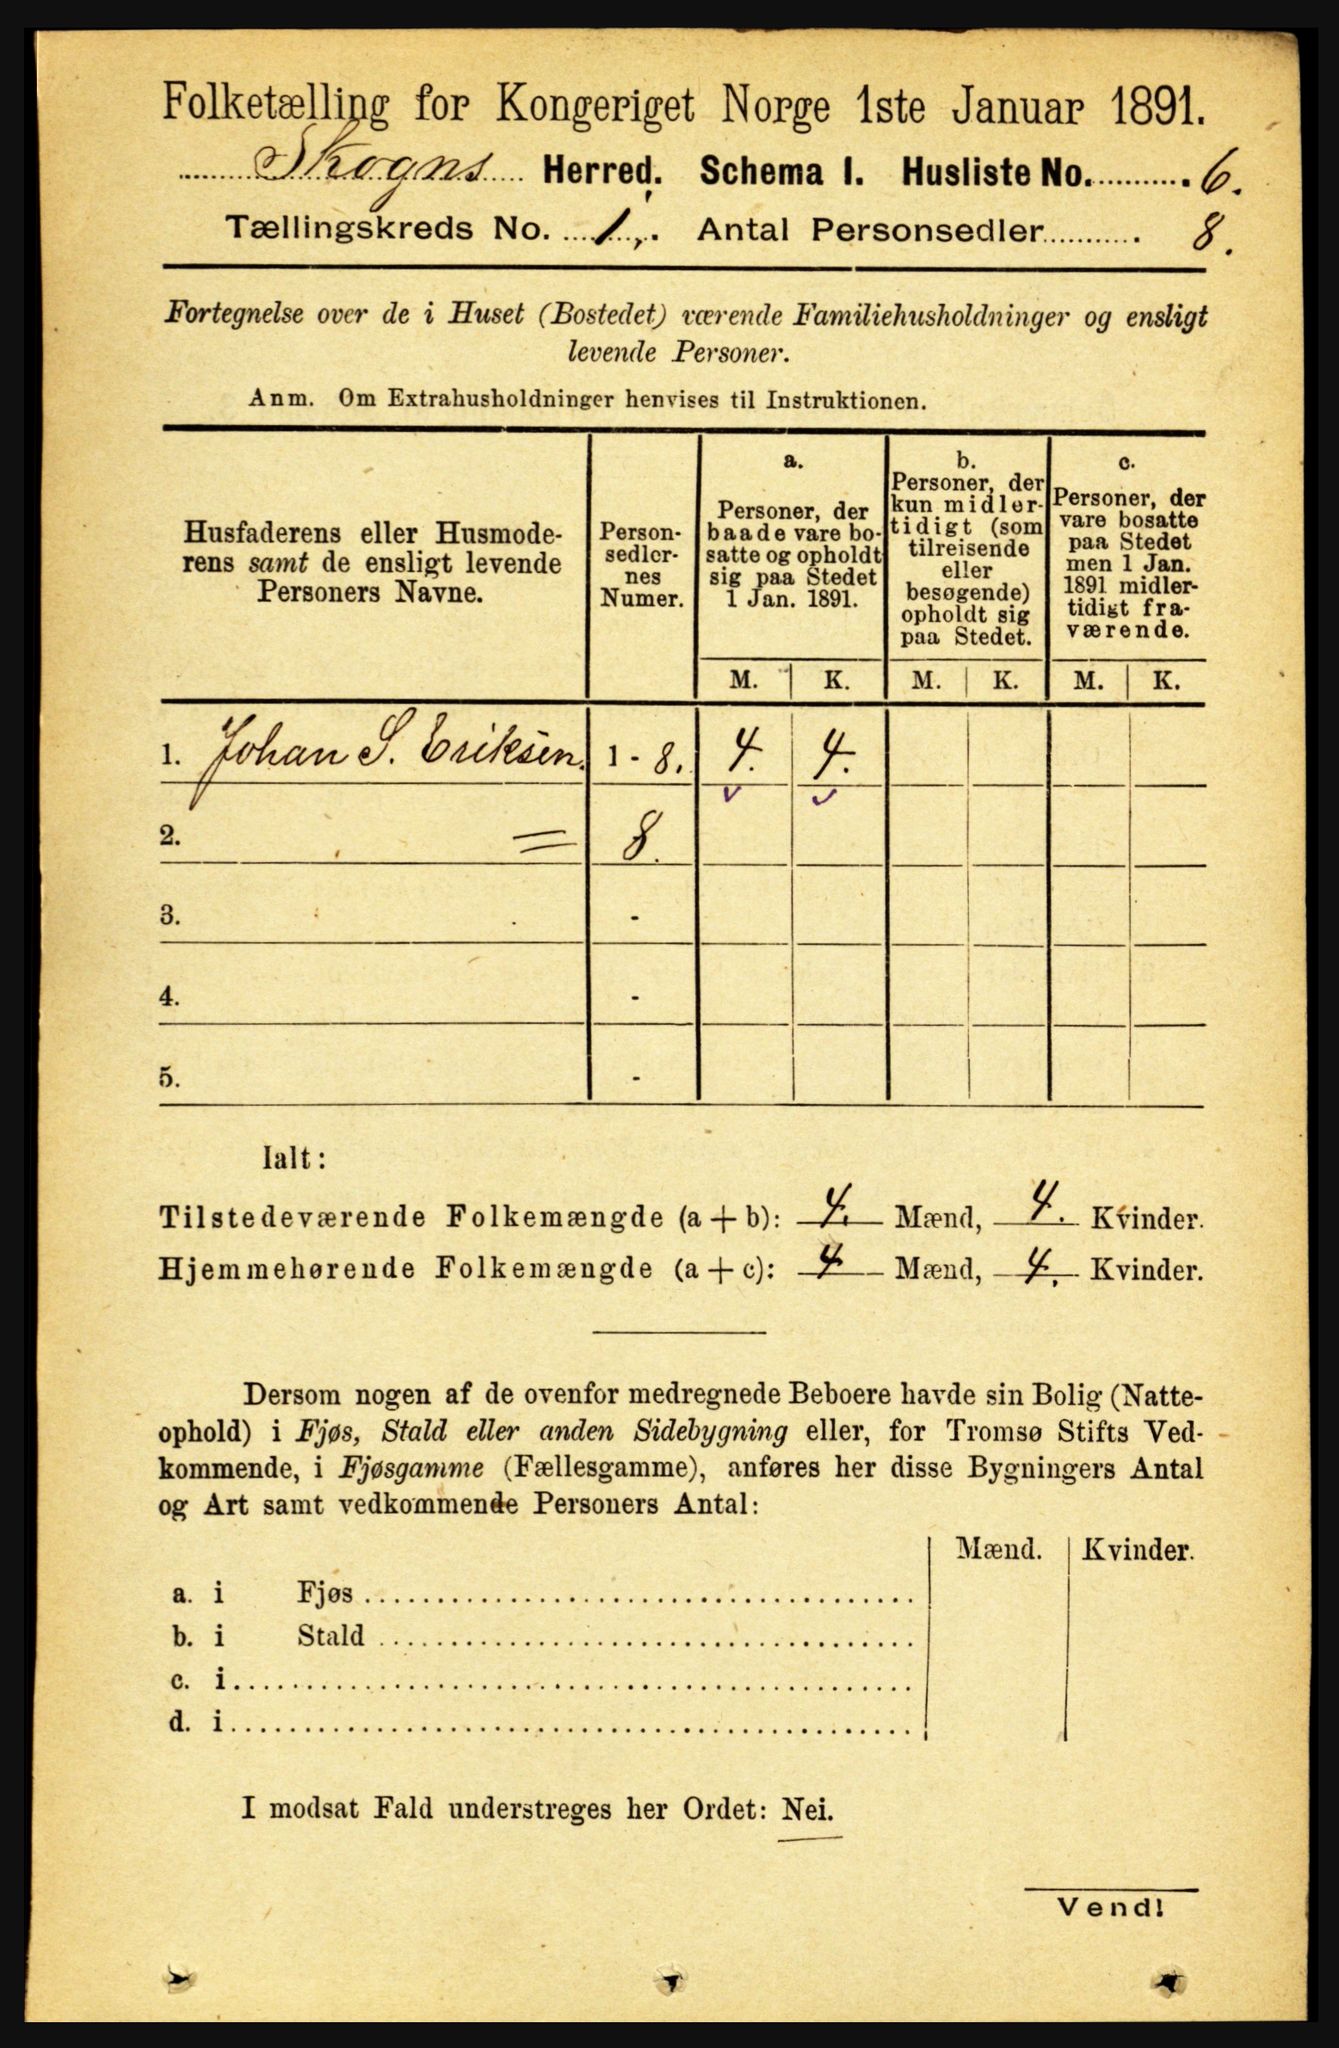 Folketælling for Kongeriget Norge 1ste Januar 1891.
Skogns Herred. Schema I. Husliste No. 6.
Tællingskreds No. 1. Antal Personsedler 8.
Fortegnelse over de i Huset (Bostedet) værende Familiehusholdninger og ensligt
levende Personer.
Anm. Om Extrahusholdninger henvises til Instruktionen.
Husfaderens eller Husmode-
rens samt de ensligt levende
Personers Navne.
Person-
sedler-
nes
Numer.
a.
Personer, der
baade vare bo-
satte og opholdt
sig paa Stedet
1 Jan. 1891.
b.
Personer, der
kun midler-
tidigt (som
tilreisende
eller
besøgende)
opholdt sig
paa Stedet.
c.
Personer, der
vare bosatte
paa Stedet
men 1 Jan.
1891 midler-
tidigt fra-
værende.
M. K. M. K. M. K.
1. Johan S. Eriksen. 1 - 8. 4. 4.
2. = 8.
3. -
4. -
5. -
Ialt:
Tilstedeværende Folkemængde (a + b): 4. Mænd, 4. Kvinder.
Hjemmehørende Folkemængde (a + c): 4 Mænd, 4. Kvinder.
Dersom nogen af de ovenfor medregnede Beboere havde sin Bolig (Natte-
ophold) i Fjøs, Stald eller anden Sidebygning eller, for Tromsø Stifts Ved-
kommende, i Fjøsgamme (Fællesgamme), anføres her disse Bygningers Antal
og Art samt vedkommende Personers Antal:
Mænd. Kvinder.
a. i Fjøs
b. i Stald
c. i
d. i
I modsat Fald understreges her Ordet: Nei.
Vend!